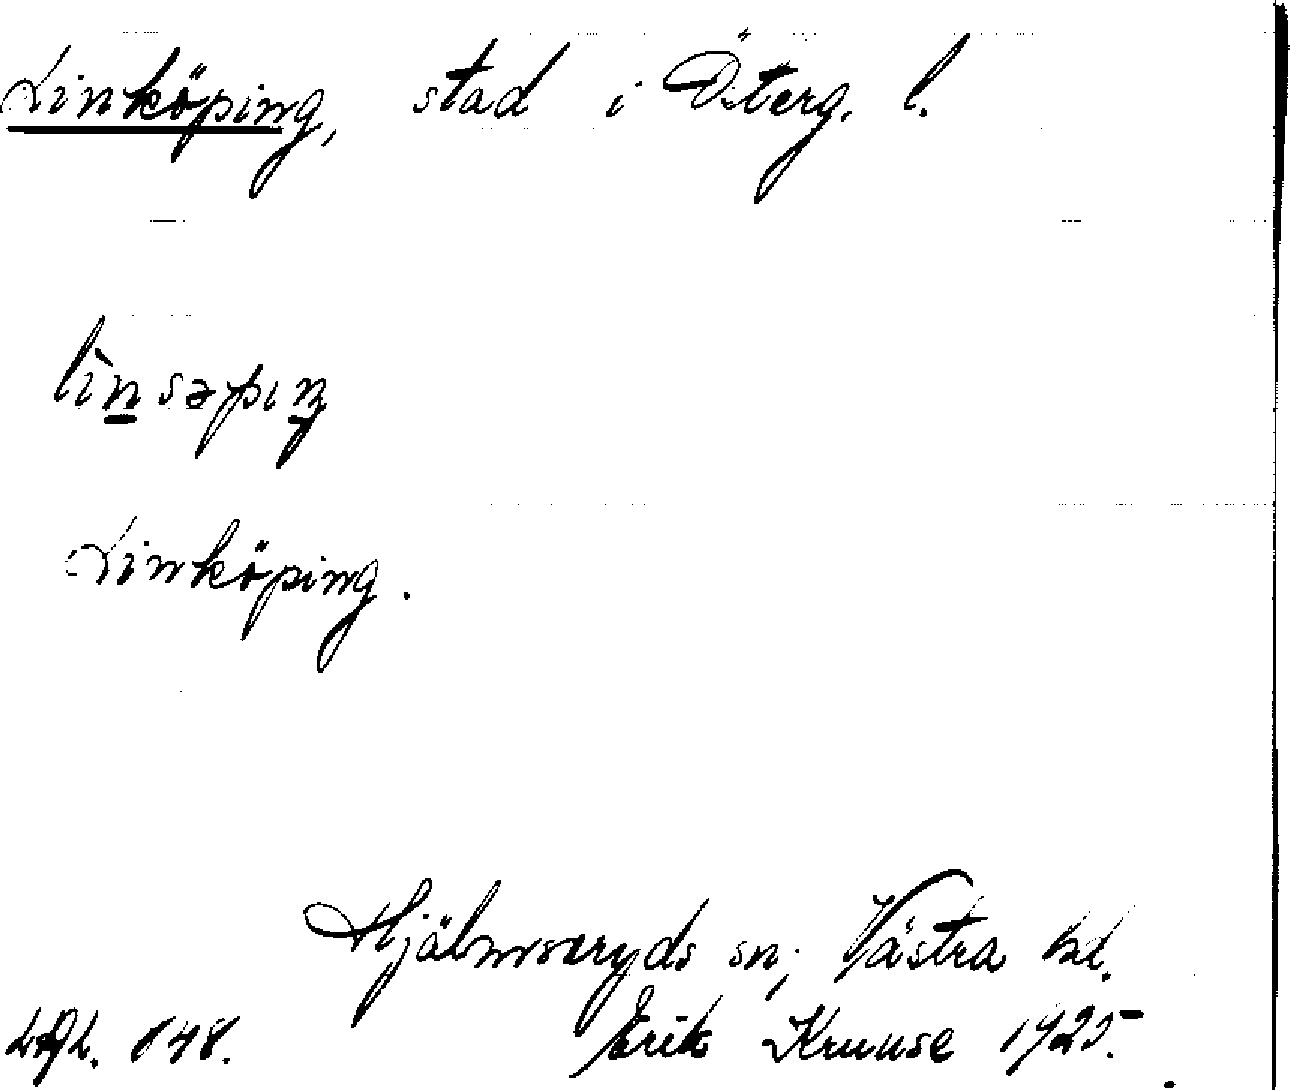 Linköping, stad i Österg. l.
lìnsəpiŋ
Linköping.
Hjälmseryds sn; Västra hd.
Erik Kruuse 1925.
848.